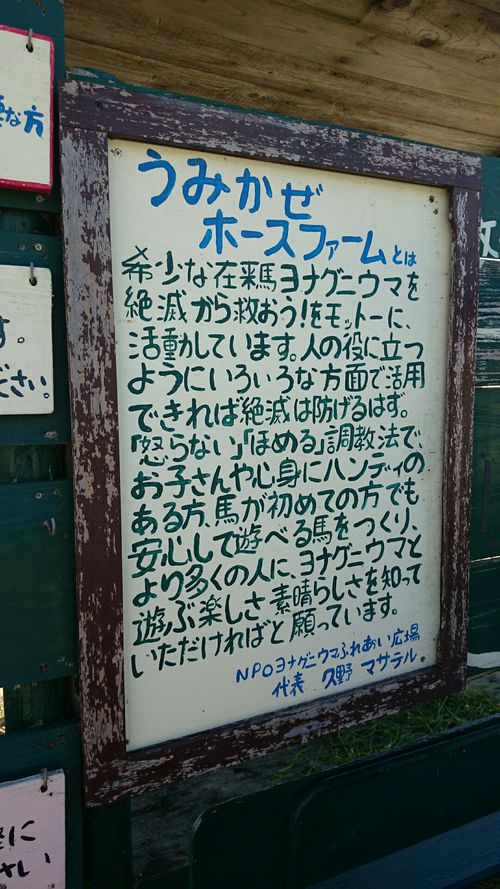 な方
うみかぜ
ホースファームとは
希少な在来馬ヨナグニウマを
絶滅から救おう!をモットーに、
活動しています。人の役に立つ
ようにいろいろな方面で活用
できれば絶滅は防げるはず。
「怒らない」「ほめる」調教法で、
お子さんや心身にハンディの
ある方、馬が初めての方でも
安心して遊べる馬をつくり、
より多くの人に、ヨナグニウマと
遊ぶ楽しさ、素晴らしさを知って
いただければと願っています。
NPOヨナグニウマふれあい広場
代表 久野 マサテル
す。
ださい。
に
さい